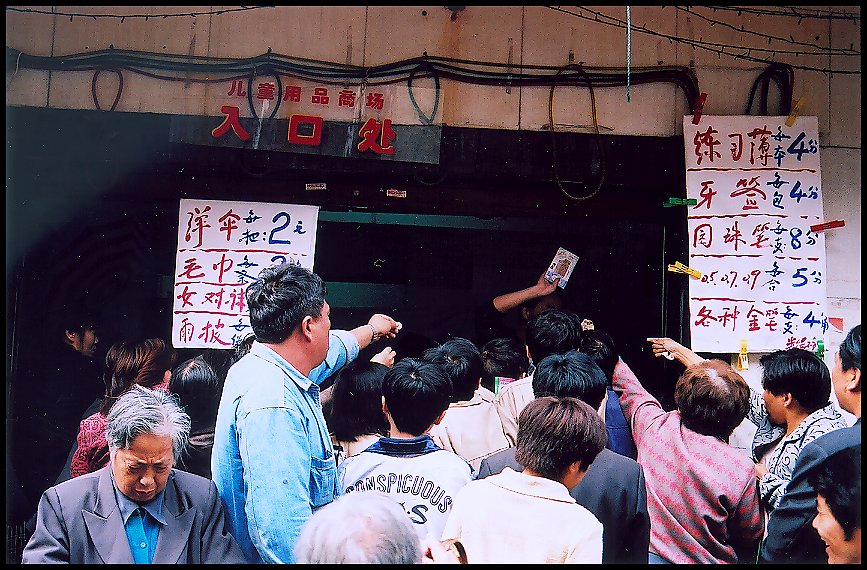 儿童用品商场
入口处
洋伞每把:2毛
毛巾每条
女对袜
雨披每
练习薄每本4分
牙签每包4分
园珠笔每支8分
0.5.0.7.0.9每合5分
各种金笔每支4角
CONSPICUOUS